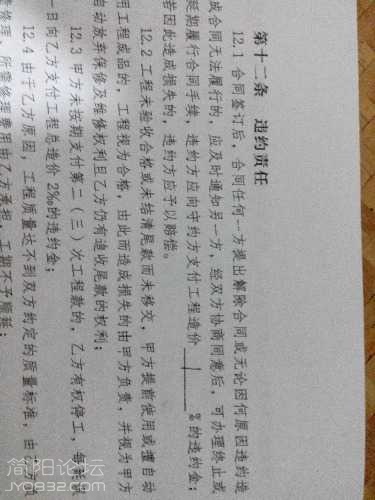 第十二条 违约责任
12.1 合同签订后，合同任何一方提出解除合同或无论因何原因违约造
成合同无法履行的，应及时通知另一方，经双方协商同意后，可办理终止或
延期履行合同手续，违约方应向守约方支付工程造价 1 %的违约金；
若因此造成损失的，违约方应予以赔偿。
12.2 工程未验收合格或未结清尾款而未移交，甲方提前使用或擅自
用工程成品的，工程视为合格，由此而造成损失的由甲方负责，并视为甲方
自动放弃保修及维修权利且乙方仍有追收尾款的权利；
12.3 甲方未按期支付第二（三）次工程款的，乙方有权停工，每
一日向乙方支付工程总造价 2‰的违约金；
12.4 由于乙方原因，工程质量达不到双方约定的质量标准，由
修理，所需修理费用由乙方承担，工期不予顺延；
简阳论坛
jianyang.cc